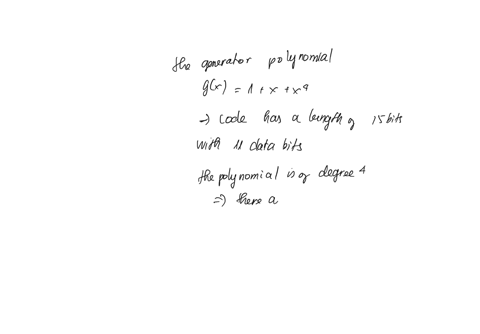 the generator polynomial
g(x) = 1 + x + x⁴
→ code has a length of 15 bits
with 11 data bits
the polynomial is of degree 4
=> there a